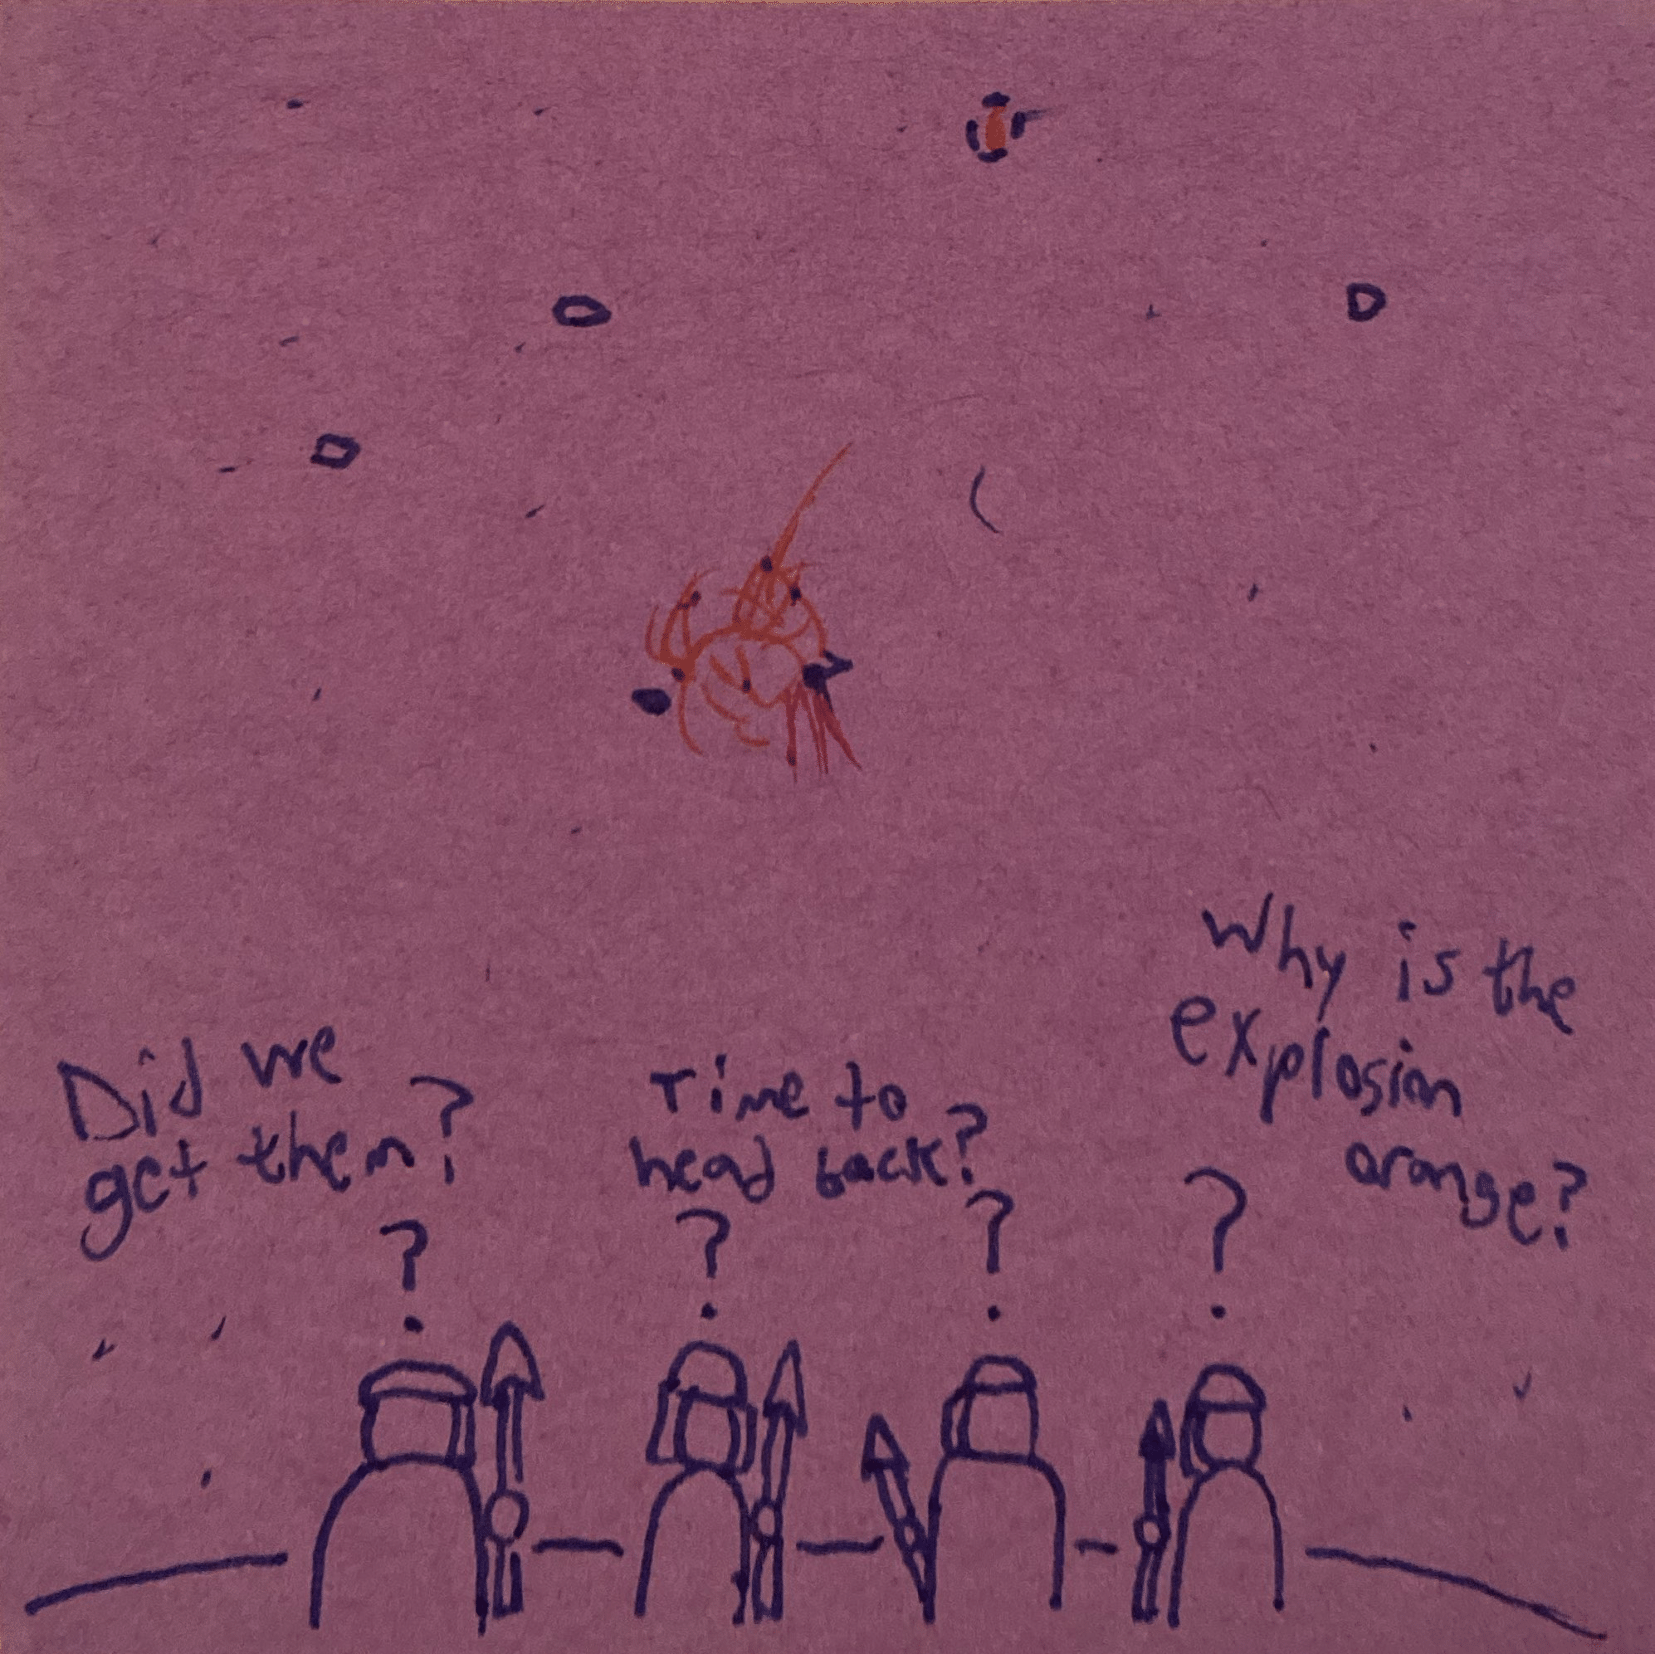 Did we
get them?
Time to
head back?
Why is the
explosion
orange?
?
?
?
?